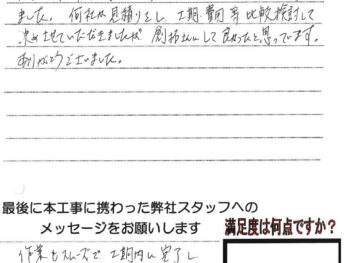 ました。何社か見積りをし、工期、費用等比較検討して
決めさせていただきましたが 創拓さんにして良かったと思っています。
ありがとうございました。
最後に本工事に携わった弊社スタッフへの
メッセージをお願いします
満足度は何点ですか？
作業もスムーズで工期内に完了し